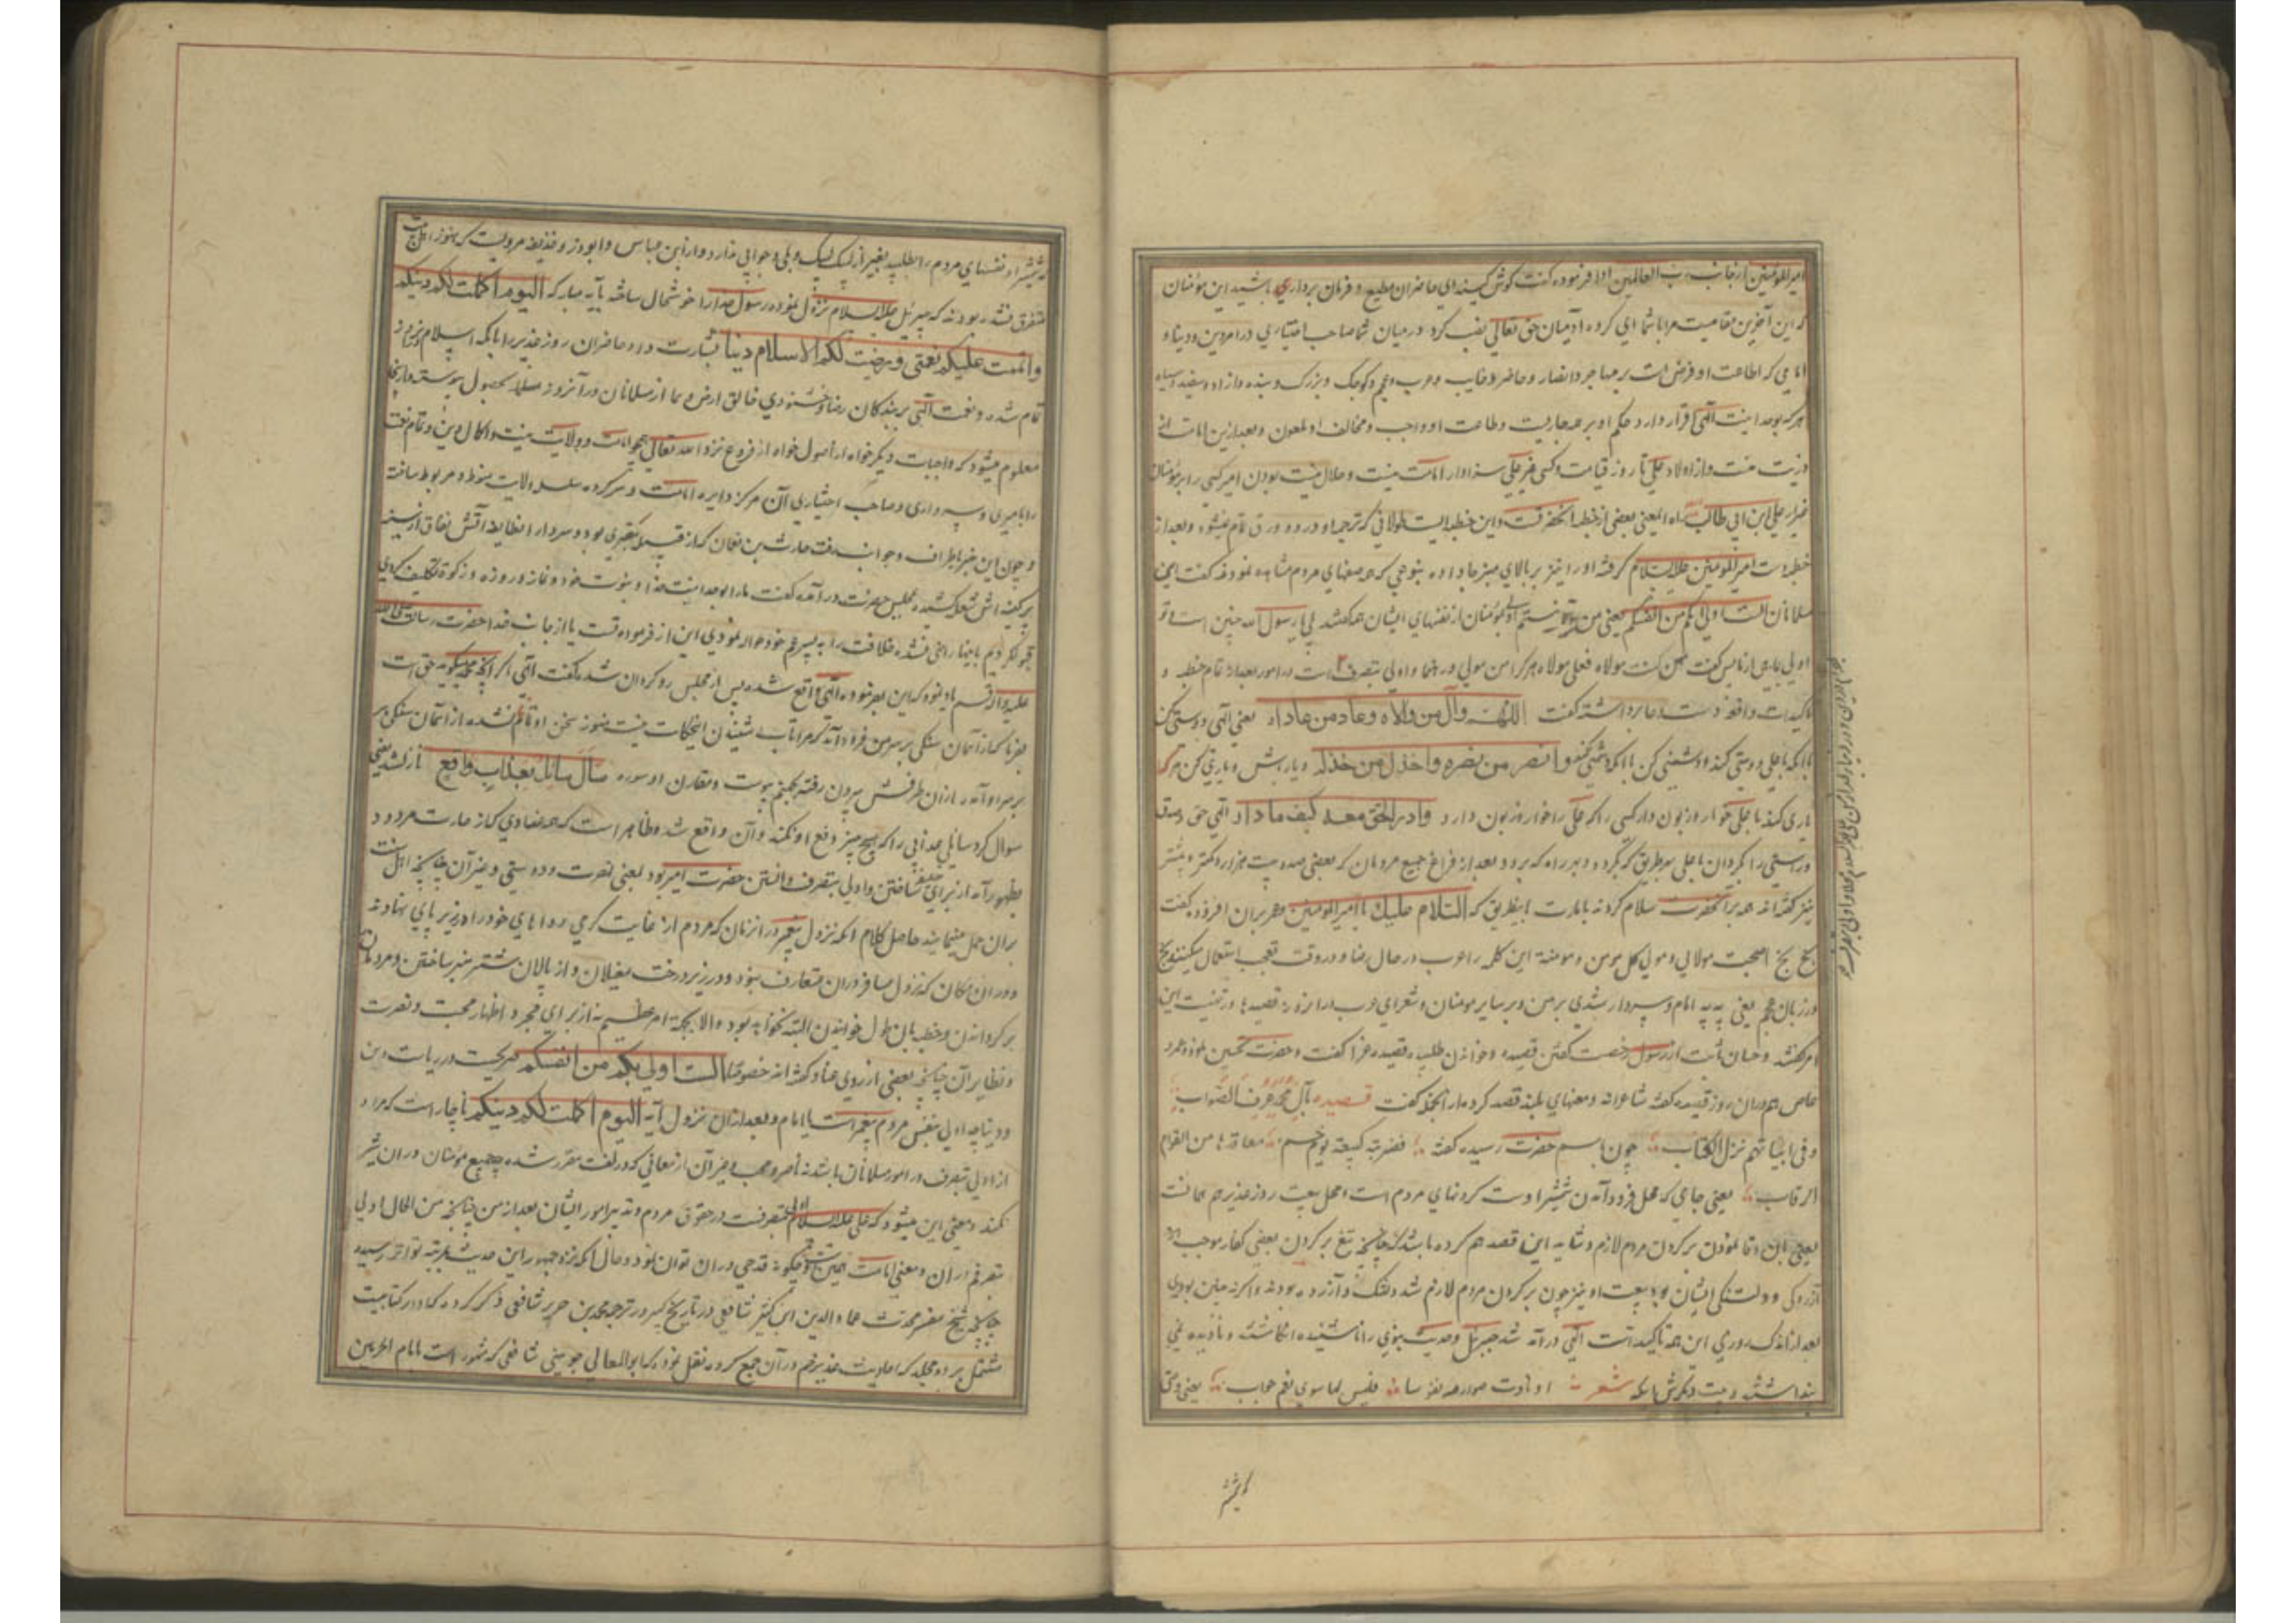 امیرالمؤمنین از جانب رب العالمین ادا فرموده گفت گوش کنید ای حاضران و مطیع و فرمان برداری باشید این مؤمنان
که این آخرین مقامیست مرا با شما ای کرده آدمیان حق تعالی نصب کرد در میان شما صاحب اختیاری در امر دین و دنیا و
امامی که اطاعت او فرض است بر مهاجر و انصار و حاضر و غایب و عرب و عجم و کوچک و بزرگ و بنده و آزاد و سفید و سیاه
هر که بوحدانیت الهی اقرار دارد حکم او بر همه جاریست و طاعت او واجب و مخالف او ملعون و بعد ازین امامت از
ذریت منست و از اولاد علی تا روز قیامت و کسی غیر علی سزاوار امامت نیست و حلال نیست بودن امیر کسی را بر مؤمنان
غیر از علی ابن ابی طالب یعنی بعضی از خطبه آنحضرتست و این خطبه ایست طولانی که ترجمه او در دو ورق تمام میشود و بعد از
خطبه دست امیرالمومنین علیه السلام گرفته او را نیز بر بالای منبر جا داده بنوعی که همه صفهای مردم مشاهده نمودند گفت ای
مسلمانان الست اولی بکم من انفسکم یعنی من نیستم اولی بمؤمنان از نفسهای ایشان همه گفتند بلی یا رسول الله چنین است و تو
اولی بمایی از ما پس گفت من کنت مولاه فعلی مولاه هر که را من مولی و رهنما و اولی بتصرف است در امور بعد از تمام خطبه و
تاکیدات واقعه دست دعا برداشته گفت اللهم وال من والاه و عاد من عاداه یعنی الهی دوستی کن
با آنکه با علی دوستی کند و دشمنی کن با آنکه دشمنی کند و انصر من نصره و اخذل من خذله و یار باش و یاری کن هر که
یاری کند با علی و خوار و زبون دار کسی را که علی را خوار و زبون دارد و ادر الحق معه کیف ما دار الهی حق و صدق
و راستی را بگردان با علی بهر طریق که بگردد و بهر راه که برود بعد از فراغ جمیع مردمان که بعضی صد و بیست هزار و کمتر و بیشتر
نیز گفته اند همه بر آنحضرت سلام کردند بامارت باین طریق که السلام علیک یا امیرالمومنین و عمر بران افزوده گفت
بخ بخ اصبحت مولای و مولی کل مومن و مومنة این کلمه را عرب در حال رضا و در وقت تعجب استعمال میکنند بخ
در زبان عجم یعنی به به امام و سپردار شدی بر من و بر سایر مومنان و شعرای عرب در آنروز قصیدها در تهنیت این
امر گفتند و حسان ثابت از رسول رخصت گفتن قصیده و خواندن طلبیده قصیده غرا گفت و حضرت تحسین نمود و عمرو
عاص هم دران روز قصیده گفته شاعرانه و معنیهای بلند قصد کرده از آنجمله گفت قصیده بآل محمد عرف الصواب
و فی ابیاتهم نزل الکتاب چون باسم حضرت رسیده گفته فضربته کبیعته بخم معاقدها من القوم
الرقاب یعنی جایی که محل فرود آمدن شمشیر اوست گردنهای مردم است و محل بیعت روز غدیر هم همانست
بعد از اندک روزی این همه تاکیدات الهی در آمد شد جبرئیل و حدیث نبوی را ناشنیده انگاشتند و نادیده
پنداشتند و بیت دیگرش اینکه شعر فلیس لها سوی نعم جواب یعنی وقتی
که شمشیر
که شمشیر او نفسهای مردم را طلبید بغیر از لبیک لبیک و بلی جوابی ندارد و از ابن عباس و ابوذر و حذیفه مرویست که هنوز اهل
متفرق نشده بودند که جبرئیل علیه السلام نزول نموده رسول خدا را خوشحال ساخته بآیه مبارکه الیوم اکملت لکم دینکم
و اتممت علیکم نعمتی و رضیت لکم الاسلام دینا بشارت داد و حاضران روز غدیر را بآنکه اسلام امروز
تمام شده و نعمت الهی بر بندگان رضا و خشنودی خالق ارض و سما از مسلمانان در آنروز بحصول پیوسته و از اینجا
معلوم میشود که واجبات دیگر خواه از اصول خواه از فروع نزد الله تعالی همچو امامت و ولایت نیست و اکمال دین و تمام نعمت
را بامیری و سپرداری و صاحب اختیاری آن مرکز دایره امامت و سرکرده سلسله ولایت منوط و مربوط ساخته
و چون این خبر باطراف و جوانب رفت حارث بن نعمان که از قبیله بود و سردار انطایفه آتش نفاق از سینه
پرکینه اش شعله کشیده بمجلس حضرت در آمده گفت ما را بوحدانیت خدا و نبوت خود و نماز و روزه و زکوة تکلیف کردی
قبول کردیم باینها راضی نشده خلافت را به پسر عم خود حواله نمودی این از فرموده تست یا از جانب خدا حضرت رسالت صلی الله
علیه و آله قسم یاد نمود که این بفرموده الهی واقع شده پس از مجلس رو گردان شده گفت الهی اگر آنچه محمد میگوید حق است
بفرما که از آسمان سنگی بر سر من فرود آید که مرا تاب شنیدن این حکایت نیست هنوز سخن او تمام نشده از آسمان سنگی بر
بر سر او آمد و از آن طرفش بیرون رفته بجهنم پیوست و مقارن او سوره سأل سائل بعذاب واقع نازل شد یعنی
سوال کرد سایلی عذابی را که هیچ چیز دفع او نکند و آن واقع شد و ظاهر است که همه فسادی که از حارث مردود
بظهور آمد از برای خلیفه شناختن و اولی بتصرف دانستن حضرت امیر بود نه معنی نصرت و دوستی و غیر آن چنانچه اهل سنت
بران حمل مینمایند حاصل کلام آنکه نزول پیغمبر در آنزمان که مردم از غایت گرمی رداهای خود را در زیر پای نهادند
و دران مکان که نزول مسافر دران متعارف نبود و در زیر درخت مغیلان و از پالان شتر منبر ساختن و مردمان
بر گردانیدن و خطبه بآن طول خواندن البته نخواهد بود الا بجهت امر عظیم نه از برای مجرد اظهار محبت و نصرت
و نظایر آن چنانچه بعضی از روی عناد گفته اند خصوصا الست اولی بکم من انفسکم صریحست در ریاست دین
و دنیا چه اولی بنفس مردم پیغمبر است یا امام و بعد از ان نزول آیه الیوم اکملت لکم دینکم ناچار است که مراد
از اولی بتصرف در امور مسلمانان باشد نه ناصر و محب و غیر آن از معانی که در لغت مقرر شده
کنند و معنی این میشود که علی علیه السلام اولی بتصرفست در حقوق مردم و تدبیر امور ایشان بعد از من چنانچه من الحال اولی
بتصرفم دران و معنی امامت همین است و چگونه قدحی دران توان نمود و حال آنکه نزد جمهور این حدیث بمرتبه تواتر رسیده
چنانچه شیخ مفسر محدث عماد الدین ابن کثیر شافعی در تاریخ کبیر در ترجمه محمد بن جریر شافعی ذکر کرده که او را کتابیست
مشتمل بر دو مجلد که احادیث غدیر خم در آن جمع کرده و نقل نموده که ابوالمعالی جوینی شافعی که مشهور است بامام الحرمین